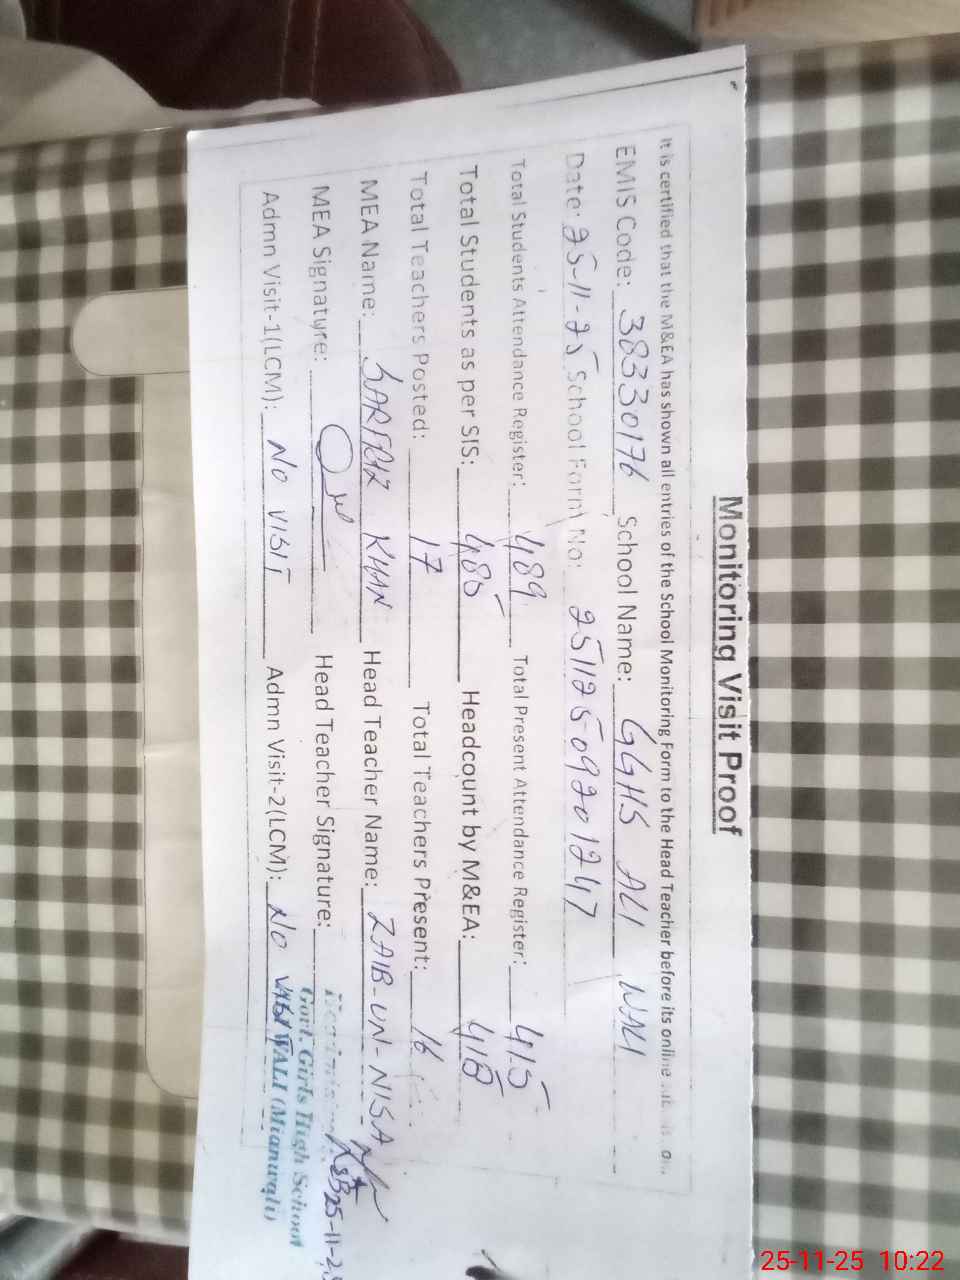 Monitoring Visit Proof
It is certified that the M&EA has shown all entries of the School Monitoring Form to the Head Teacher before its online
EMIS Code: 38330176 School Name: GGHS ALI WALI
Date: 25-11-25 School Form No: 25112509201247
Total Students Attendance Register: 489 Total Present Attendance Register: 415
Total Students as per SIS: 485 Headcount by M&EA: 415
Total Teachers Posted: 17 Total Teachers Present: 16
MEA Name: SARFRAZ KHAN Head Teacher Name: ZAIB-UN-NISA
MEA Signature: Head Teacher Signature: 25-11-25
Govt. Girls High School
Admn Visit-1(LCM): No VISIT Admn Visit-2(LCM): No VISIT
WALI (Mianwali)
25-11-25 10:22